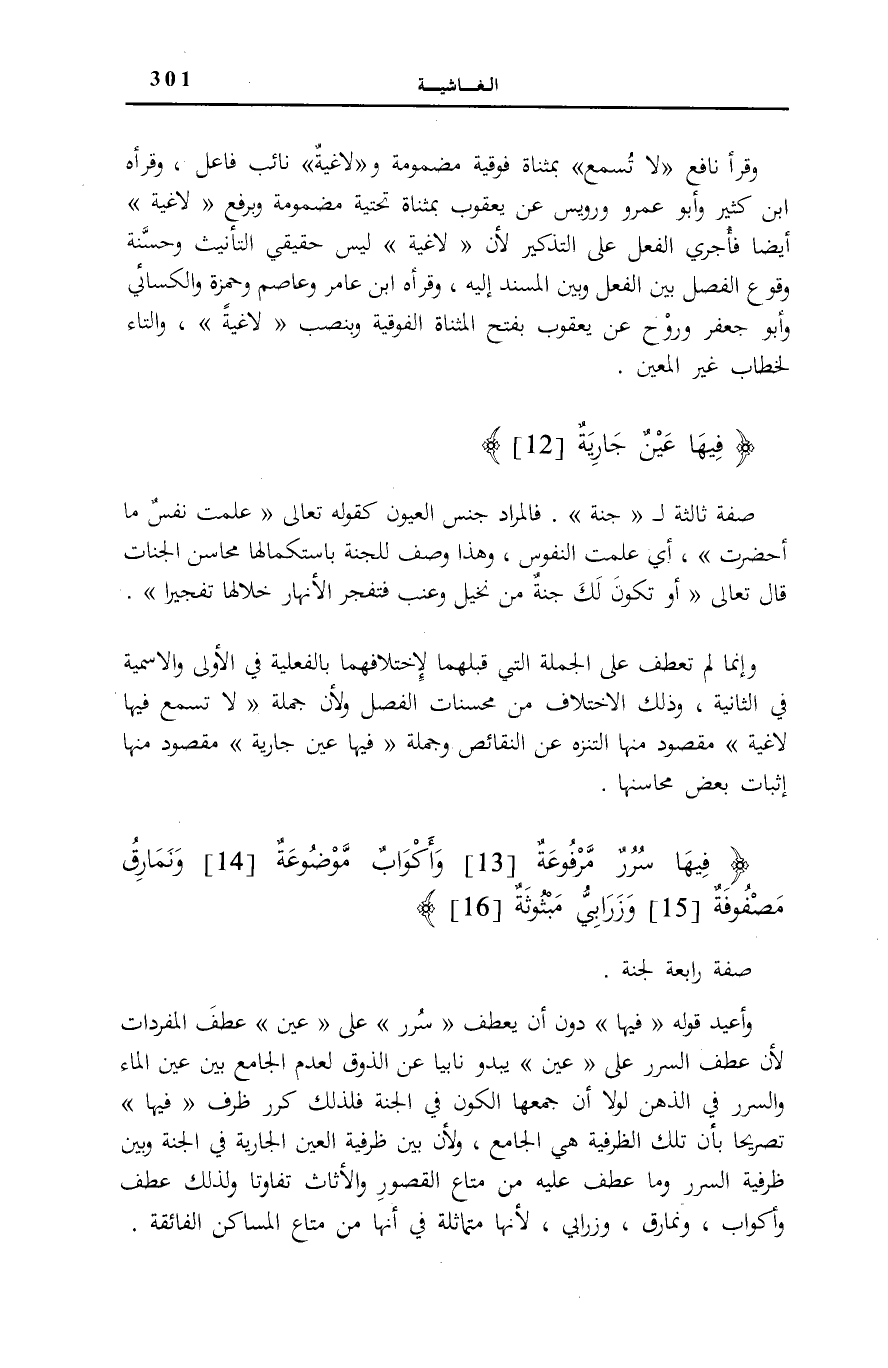 الغــاشيــة 301
وقرأ نافع «لا تُسمع» بمثناة فوقية مضمومة و«لاغيةٌ» نائب فاعل ، وقرأه
ابن كثير وأبو عمرو ورويس عن يعقوب بمثناة تحتية مضمومة وبرفع « لاغية »
أيضا فأُجري الفعل على التذكير لأن « لاغية » ليس حقيقي التأنيث وحسَّنة
وقوع الفصل بين الفعل وبين المسند إليه ، وقرأه ابن عامر وعاصم وحمزة والكسائي
وأبو جعفر وروْح عن يعقوب بفتح المثناة الفوقية وبنصب « لاغيةً » ، والتاء
لخطاب غير المعين .
﴿ فِيهَا عَيْنٌ جَارِيَةٌ [12] ﴾
صفة ثالثة لـ « جنة » . فالمراد جنس العيون كقوله تعالى « علمت نفسٌ ما
أحضرت » ، أي علمت النفوس ، وهذا وصف للجنة باستكمالها محاسن الجنات
قال تعالى « أو تكونَ لَكَ جنةٌ من نخيل وعنب فتفجر الأنهار خلالها تفجيرا » .
وإنما لم تعطف على الجملة التي قبلهما لإختلافهما بالفعلية في الأولى والاسمية
في الثانية ، وذلك الاختلاف من محسنات الفصل ولأن جملة « لا تسمع فيها
لاغية » مقصود منها التنزه عن النقائص وجملة « فيها عين جارية » مقصود منها
إثبات بعض محاسنها .
﴿ فِيهَا سُرُرٌ مَّرْفُوعَةٌ [13] وَأَكْوَابٌ مَّوْضُوعَةٌ [14] وَنَمَارِقُ
مَصْفُوفَةٌ [15] وَزَرَابِيُّ مَبْثُوثَةٌ [16] ﴾
صفة رابعة لجنة .
وأعيد قوله « فيها » دون أن يعطف « سُرر » على « عين » عطفَ المفردات
لأن عطف السرر على « عين » يبدو نابيا عن الذوق لعدم الجامع بين عين الماء
والسرر في الذهن لولا أن جمعها الكون في الجنة فلذلك كرر ظرف « فيها »
تصريحا بأن تلك الظرفية هي الجامع ، ولأن بين ظرفية العين الجارية في الجنة وبين
ظرفية السرر وما عطف عليه من متاع القصور والأثاث تفاوتا ولذلك عطف
وأكواب ، ونمارق ، وزرابي ، لأنها متماثلة في أنها من متاع المساكن الفائقة .